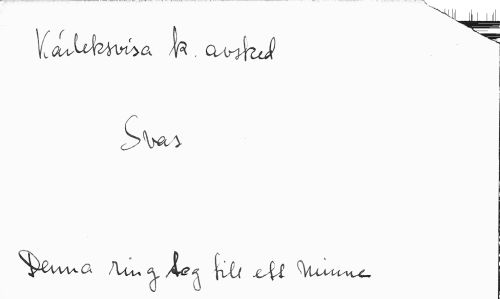 Kärleksvisa k. avsked
Svas
Denna ring tog till ett minne